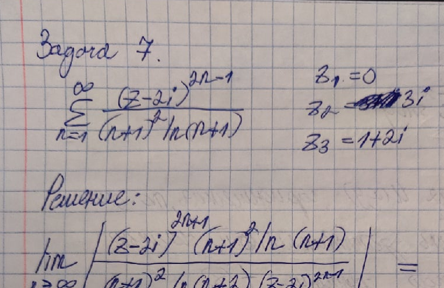 Задача 7.
∞ ∑ n=1 (z-2i)^{2n-1} / (n+1)^2 ln(n+1)
z_1 = 0
z_2 = 3i
z_3 = 1+2i
Решение:
lim n→∞ | (z-2i)^{2n+1} (n+1)^2 ln(n+1) / (n+1)^2 ln(n+2) (z-2i)^{2n-1} | =